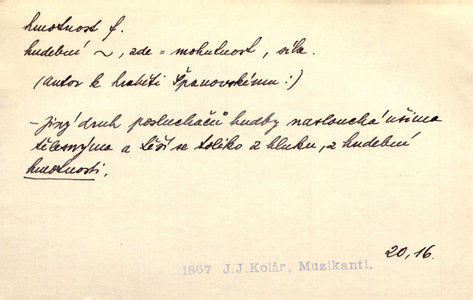 hmotnost f.
hudební ~, zde = mohutnost, síla.
(autor k hraběti Španovskému:)
- jiný druh posluchačů hudby naslouchá ušima
tělesnýma a těší se toliko z hluku, z hudební
hmotnosti.
20, 16.
1867 J.J.Kolár, Muzikanti.